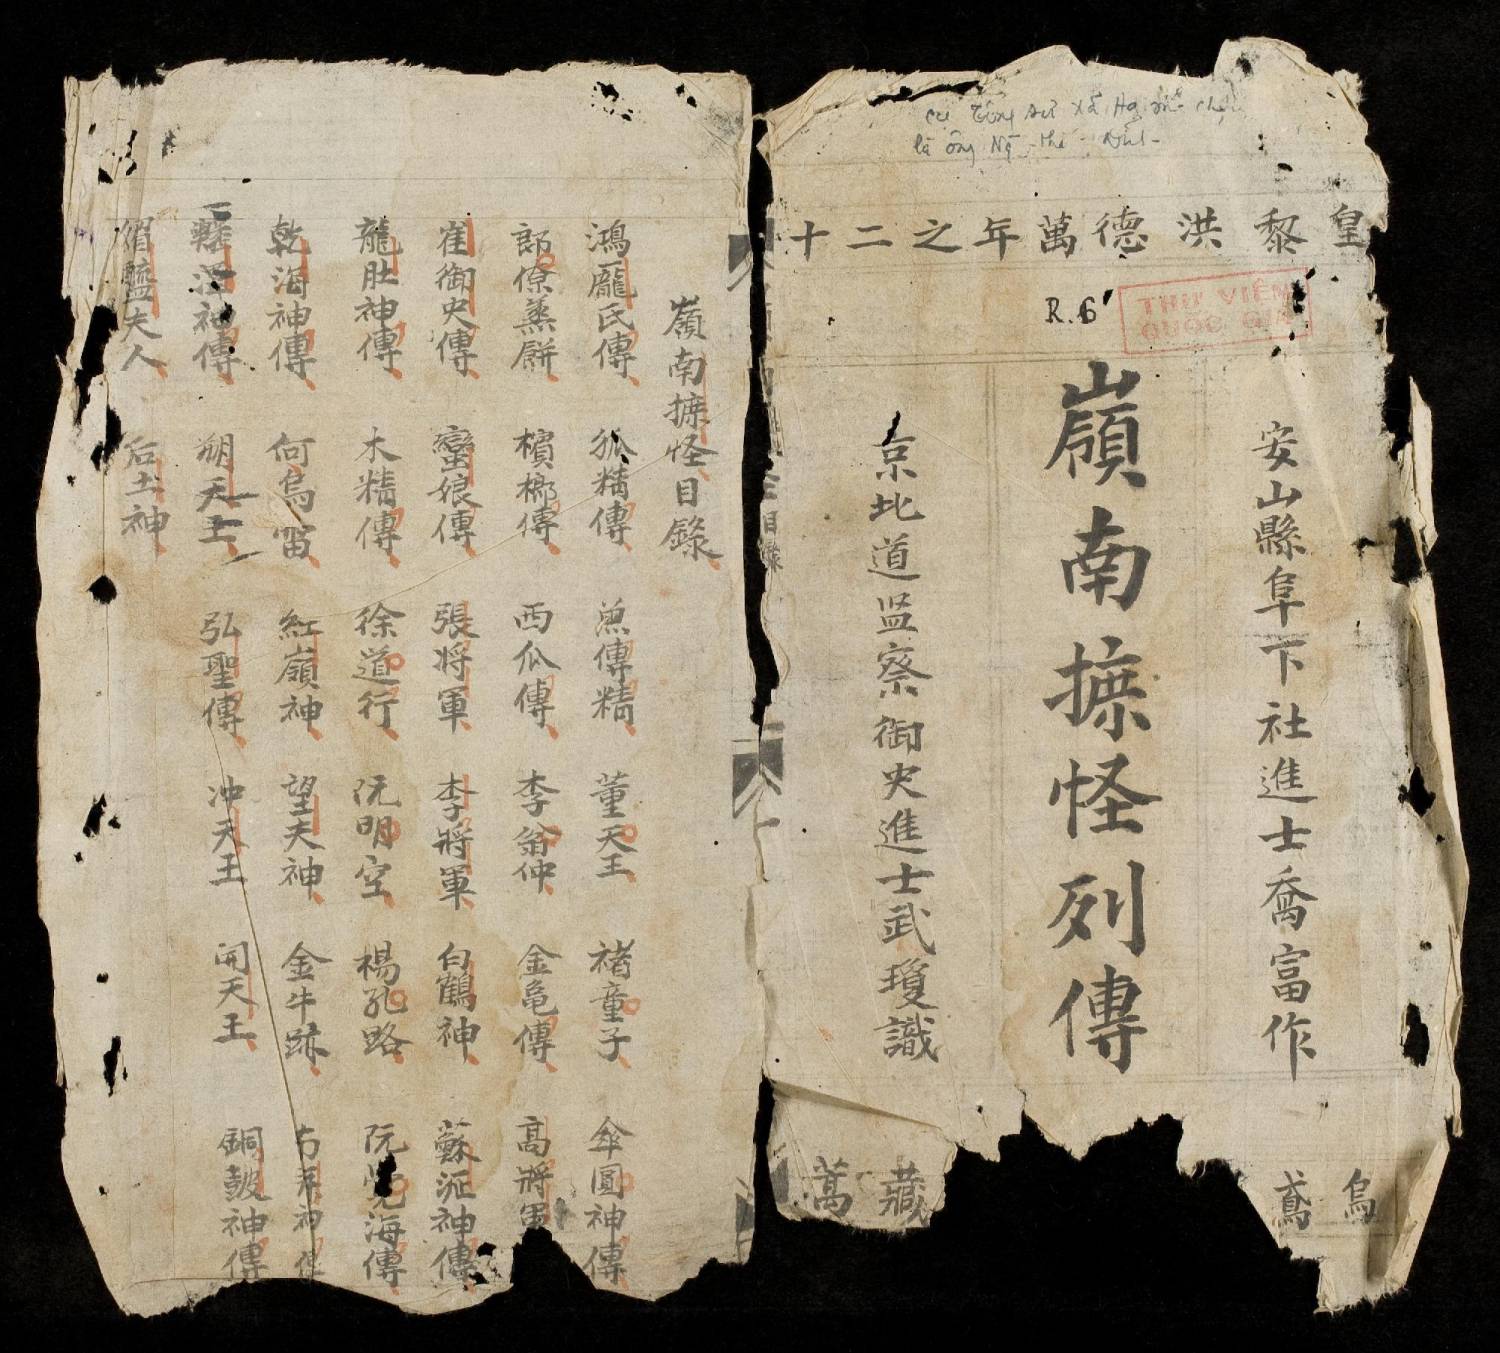 là ông Ngô
皇黎洪德萬年之二十
R.6
THƯ VIỆN
QUỐC GIA
安山縣阜下社進士喬富作
嶺南摭怪列傳
京北道监察御史進士武瓊識
烏鳶
藏蒿
嶺南摭怪目錄
鴻龐氏傳 狐精傳 漁傳精 董天王 褚童子 傘圓神傳
蒸餅 檳榔傳 西瓜傳 李翁仲 金亀傳 高將軍
崔御史傳 蠻娘傳 張將軍 李將軍 白鶴神 蘇沥神傳
龍肚神傳 木精傳 徐道行 阮明空 楊孔路 阮覚海傳
乾海神傳 何烏雷 紅嶺神 望夫神 金牛跡 神傳
神傳 朔天王 弘聖傳 冲天王 開天王 銅鼓神傳
媚醯夫人 后土神